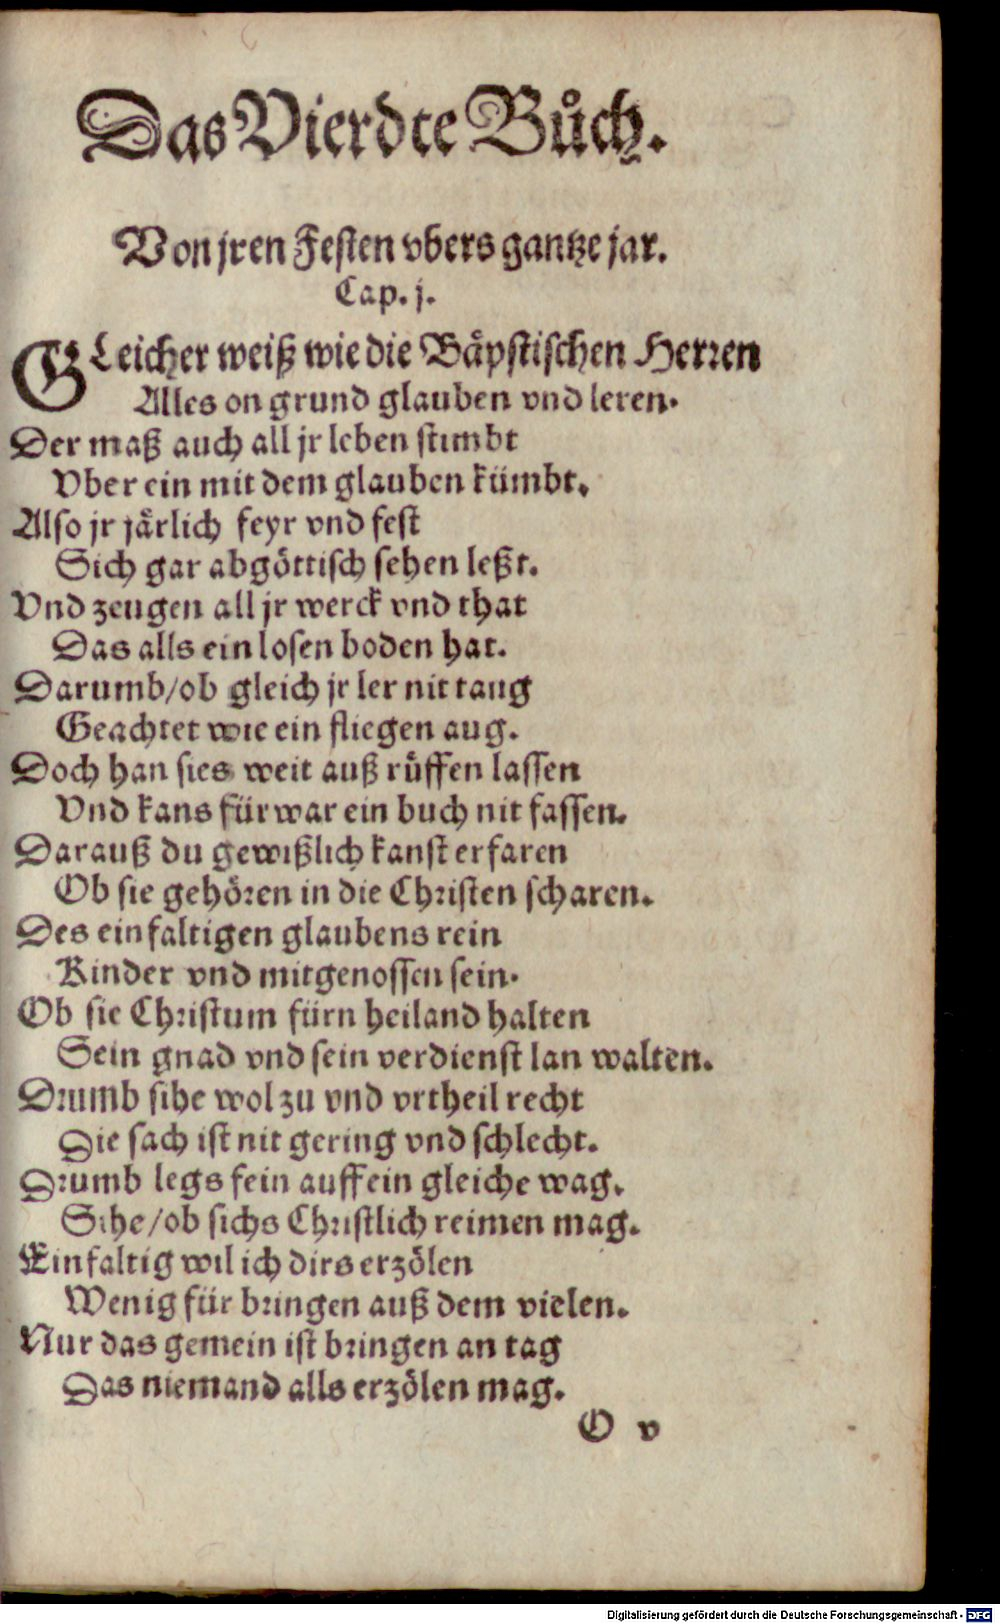 Das Vierdte Bůch.
Von jren Festen vbers gantze jar.
Cap. j.
GLeicher weiß wie die Bäpstischen Herren
Alles on grund glauben vnd leren.
Der maß auch all jr leben stimbt
Vber ein mit dem glauben kümbt.
Also jr järlich feyr vnd fest
Sich gar abgöttisch sehen leßt.
Vnd zeugen all jr werck vnd that
Das alls ein losen boden hat.
Darumb/ob gleich jr ler nit taug
Geachtet wie ein fliegen aug.
Doch han sies weit auß rüffen lassen
Vnd kans für war ein buch nit fassen.
Darauß du gewißlich kanst erfaren
Ob sie gehören in die Christen scharen.
Des einfaltigen glaubens rein
Kinder vnd mitgenossen sein.
Ob sie Christum fürn heiland halten
Sein gnad vnd sein verdienst lan walten.
Drumb sihe wol zu vnd vrtheil recht
Die sach ist nit gering vnd schlecht.
Drumb legs fein auff ein gleiche wag.
Sihe/ob sichs Christlich reimen mag.
Einfaltig wil ich dirs erzölen
Wenig für bringen auß dem vielen.
Nur das gemein ist bringen an tag
Das niemand alls erzölen mag.
O v
Digitalisierung gefördert durch die Deutsche Forschungsgemeinschaft - DFG